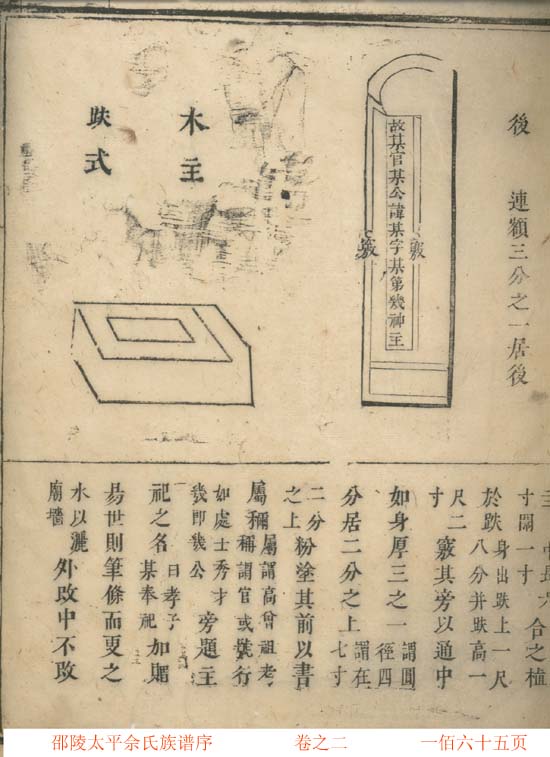 後 連額三分之一居後
竅
故某官某公諱某字某第幾神主
竅
木主
趺式
寸闊一寸 合之植
於趺 身出趺上一尺 八分并趺高一
尺二寸 竅其旁以通中
如身厚三之一 謂圓徑四
分居二分之上 謂在七寸
二分之上 粉塗其前以書
屬稱 屬謂高曾祖考 稱謂官或號行
如處士秀才 幾即幾公 旁題主
祀之名 曰孝子某奉祀 加贈
易世則筆滌而更之
水以灑廟墻 外改中不改
邵陵太平余氏族谱序 卷之二 一佰六十五页